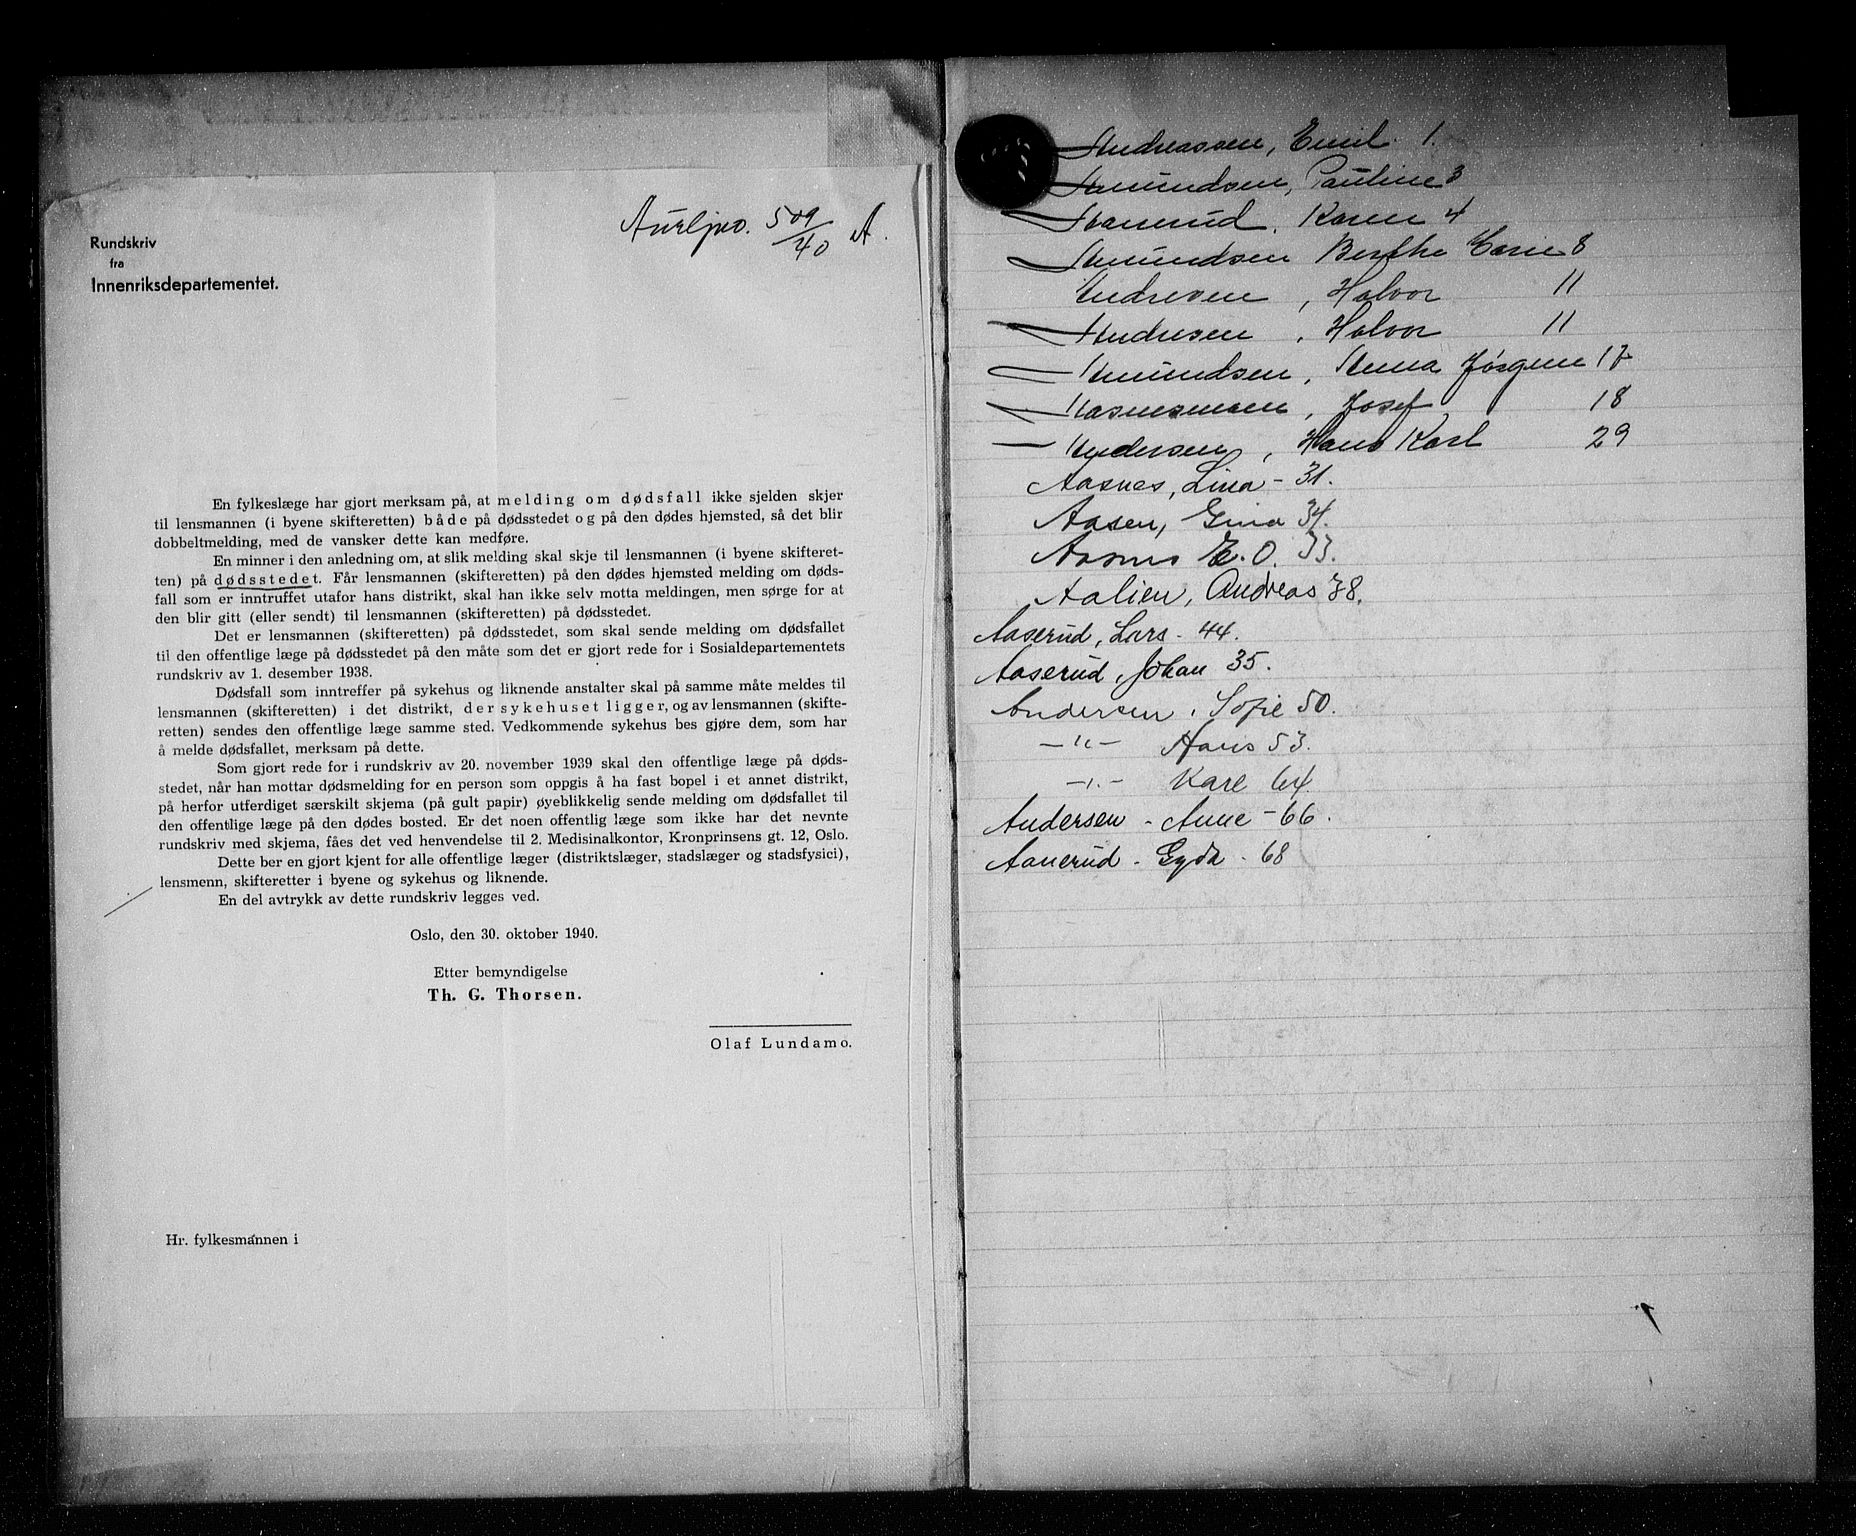 Aurljno. 509/40 A.
Rundskriv
fra
Innenriksdepartementet.
En fylkeslæge har gjort merksam på, at melding om dødsfall ikke sjelden skjer
til lensmannen (i byene skifteretten) både på dødsstedet og på den dødes hjemsted, så det blir
dobbeltmelding, med de vansker dette kan medføre.
En minner i den anledning om, at slik melding skal skje til lensmannen (i byene skifteret-
ten) på dødsstedet. Får lensmannen (skifteretten) på den dødes hjemsted melding om døds-
fall som er inntruffet utafor hans distrikt, skal han ikke selv motta meldingen, men sørge for at
den blir gitt (eller sendt) til lensmannen (skifteretten) på dødsstedet.
Det er lensmannen (skifteretten) på dødsstedet, som skal sende melding om dødsfallet
til den offentlige læge på dødsstedet på den måte som det er gjort rede for i Sosialdepartementets
rundskriv av 1. desember 1938.
Dødsfall som inntreffer på sykehus og liknende anstalter skal på samme måte meldes til
lensmannen (skifteretten) i det distrikt, der sykehuset ligger, og av lensmannen (skifte-
retten) sendes den offentlige læge samme sted. Vedkommende sykehus bes gjøre dem, som har
å melde dødsfallet, merksam på dette.
Som gjort rede for i rundskriv av 20. november 1939 skal den offentlige læge på døds-
stedet, når han mottar dødsmelding for en person som oppgis å ha fast bopel i et annet distrikt,
på herfor utferdiget særskilt skjema (på gult papir) øyeblikkelig sende melding om dødsfallet til
den offentlige læge på den dødes bosted. Er det noen offentlig læge som ikke har det nevnte
rundskriv med skjema, fåes det ved henvendelse til 2. Medisinalkontor, Kronprinsens gt. 12, Oslo.
Dette ber en gjort kjent for alle offentlige læger (distriktslæger, stadslæger og stadsfysici),
lensmenn, skifteretter i byene og sykehus og liknende.
En del avtrykk av dette rundskriv legges ved.
Oslo, den 30. oktober 1940.
Etter bemyndigelse
Th. G. Thorsen.
Olaf Lundamo.
Hr. fylkesmannen i
Andreassen, Emil 1.
Amundsen, Pauline 3
Aanerud, Karen 4
Amundsen Berthe Marie 8
Andresen, Halvor 11
Andresen, Halvor 11
Amundsen, Anna Jørgine 17
Aasnesmoen, Josef 18
Andersen, Hans Karl 29
Aasnes, Lina - 31.
Aasen, Gina 34.
Aasnes E. O. 33.
Aalien, Andreas 38.
Aaserud, Lars - 44.
Aaserud, Johan 35.
Andersen, Sofie 50.
-"- Hans 53.
-"- Kare 64.
Andersen - Anne - 66.
Aanerud - Gyda - 68